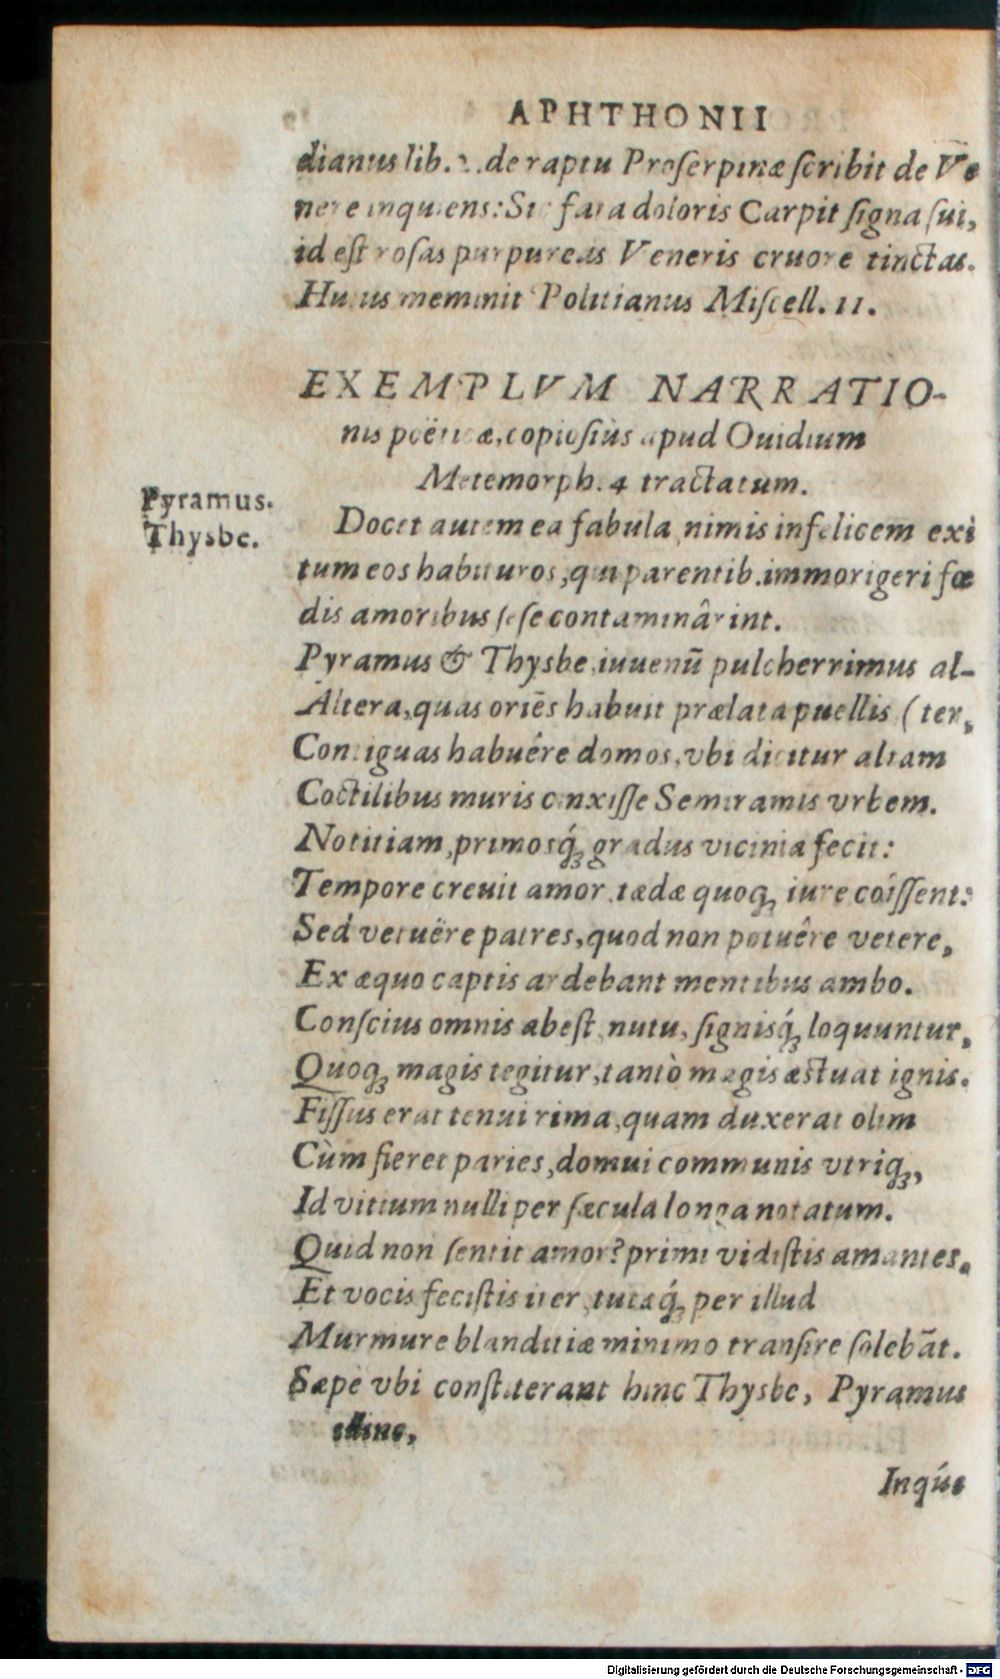 APHTHONII
dianus lib. 2. de raptu Proſerpinæ ſcribit de Ve
nere inquiens: Sic fata doloris Carpit ſigna ſui,
id eſt roſas purpureas Veneris cruore tinctas.
Huius meminit Politianus Miſcell. 11.
EXEMPLVM NARRATIO-
nis poëticæ, copioſiùs apud Ouidium
Metemorph. 4 tractatum.
Pyramus.
Thysbe.
Docet autem ea fabula nimis infelicem exi
tum eos habituros, qui parentib. immorigeri fœ
dis amoribus ſeſe contaminârint.
Pyramus & Thysbe, iuuenū pulcherrimus al-
Altera, quas oriēs habuit prælata puellis (ter,
Contiguas habuêre domos, vbi dicitur altam
Coctilibus muris cinxiſſe Semiramis vrbem.
Notitiam, primosq́; gradus vicinia fecit:
Tempore creuit amor, tædæ quoq; iure coïſſent:
Sed vetuêre patres, quod non potuêre vetere,
Ex æquo captis ardebant mentibus ambo.
Conſcius omnis abeſt, nutu, ſignisq́; loquuntur,
Quoq; magis tegitur, tantò magis æſtuat ignis.
Fiſſus erat tenui rima, quam duxerat olim
Cùm fieret paries, domui communis vtriq;,
Id vitium nulli per ſæcula longa notatum.
Quid non ſentit amor? primi vidiſtis amantes.
Et vocis feciſtis iter, tutæq́; per illud
Murmure blanditiæ minimo tranſire ſolebāt.
Sæpè vbi conſtiterant hinc Thysbe, Pyramus
illinc,
Inq́ue
Digitalisierung gefördert durch die Deutsche Forschungsgemeinschaft - DFG